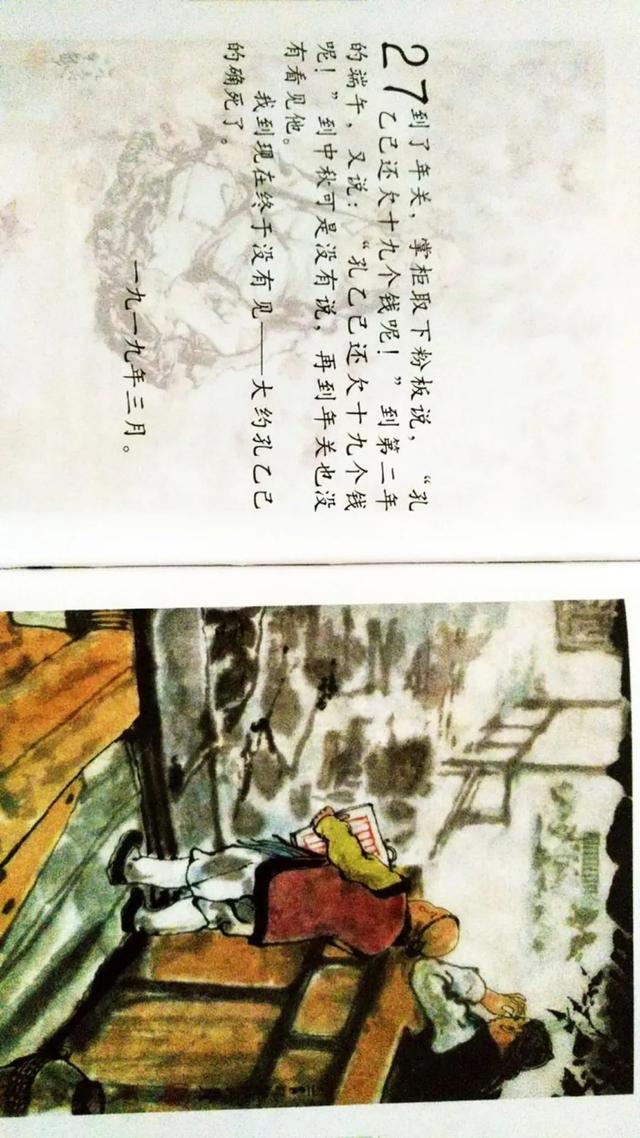 27
到了年关，掌柜取下粉板说，“孔
乙己还欠十九个钱呢！”到第二年
的端午，又说：“孔乙己还欠十九个钱
呢！”到中秋可是没有说，再到年关也没
有看见他。
我到现在终于没有见——大约孔乙己
的确死了。
一九一九年三月。